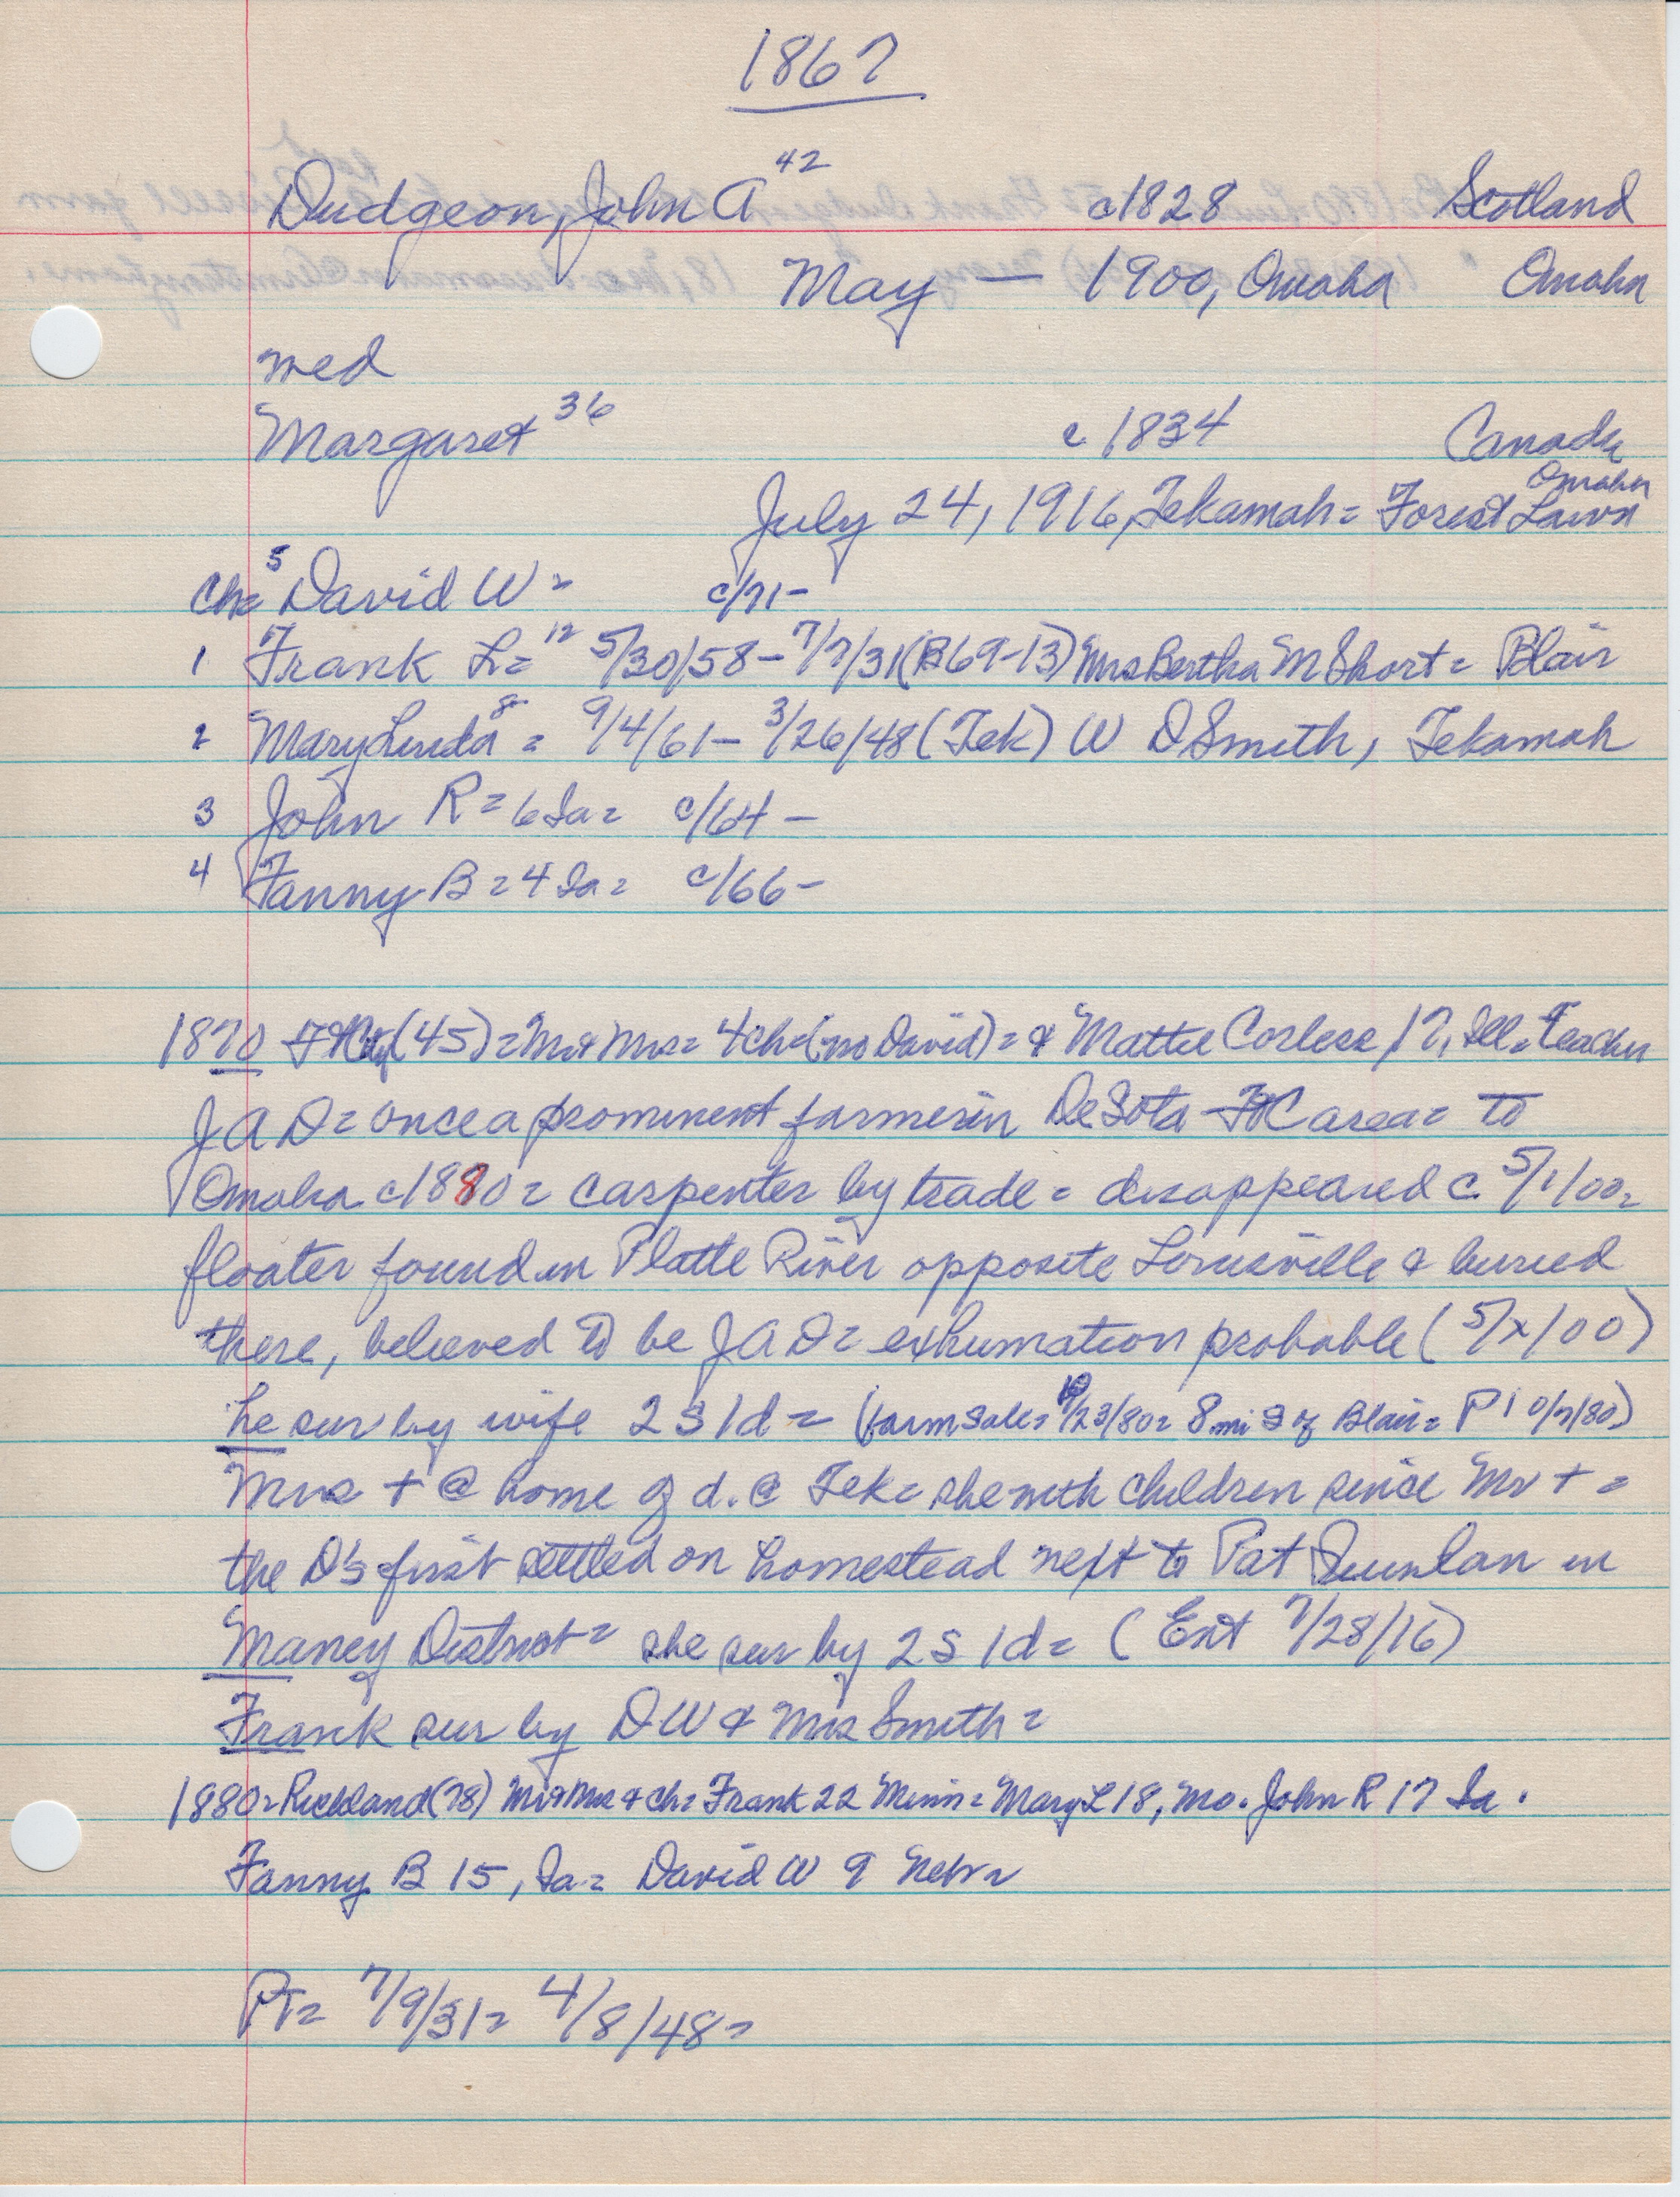 1867
Dudgeon, John A 42 c1828 Scotland
May — 1900, Omaha Omaha
med
Margaret 36 c 1834 Canada
July 24, 1916, Tekamah = Forest Lawn Omaha
Ch= 5 David W = c/71 -
1 Frank L = 12 5/30/58 - 7/7/31 (B69-13) Mrs Bertha M Short = Blair
2 Mary Linda 8 = 9/4/61 - 3/26/48 (Tek) W D Smith, Tekamah
3 John R = 6 Ia = c/64 -
4 Fanny B = 4 Ia = c/66 -
1870 (45) = Mr & Mrs = 4 ch = (no David) = & Mattie Corless 17, Ill = teacher
J A D = once a prominent farmer in DeSota area = to
Omaha c1880 = carpenter by trade = disappeared c. 5/1/00 =
floater found in Platte River opposite Louisville & buried
there, believed to be J A D = exhumation probable (5/x/00)
he sur by wife 2 S 1 d = (farm sale = 10/23/80 = 8 mi S of Blair = P 10/7/80)
Mrs + @ home of d. @ Tek = she with children since Mr + =
the D's first settled on homestead next to Pat Quinlan in
Maney District = she sur by 2 S 1 d = (Ent 7/28/16)
Frank sur by D W & Mrs Smith =
1880 = Richland (78) Mr & Mrs & ch = Frank 22 Minn = Mary L 18, Mo. John R 17 Ia.
Fanny B 15, Ia = David W 9 Nebr =
PT = 7/9/31 = 4/8/48 =